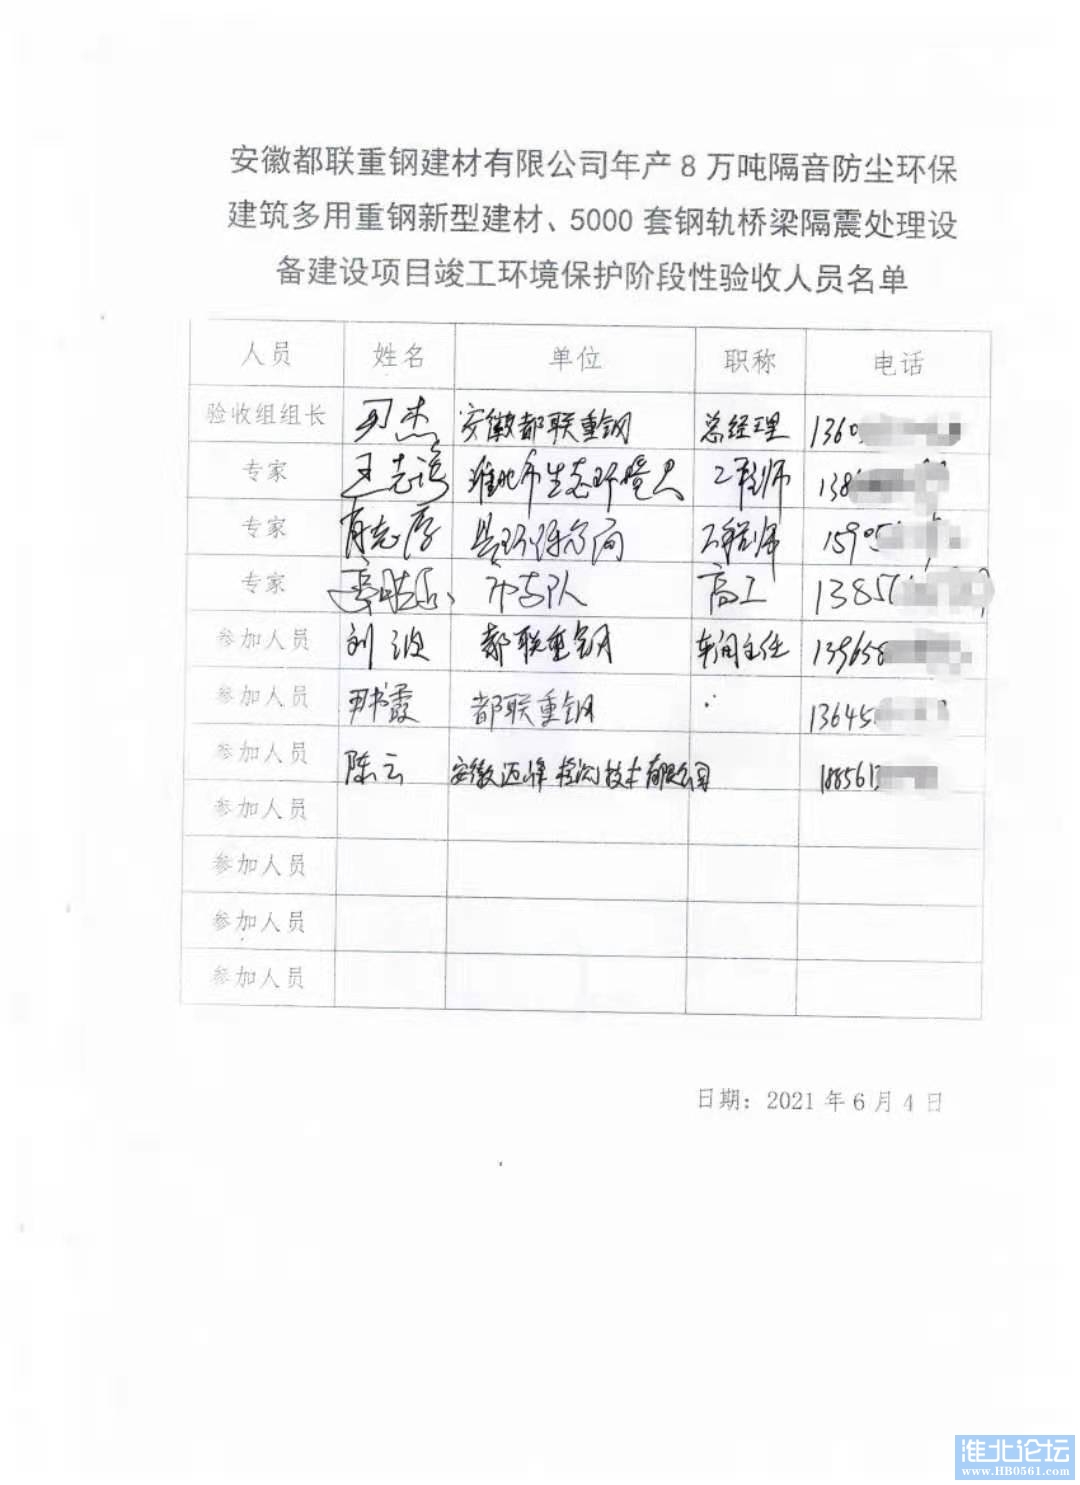 安徽都联重钢建材有限公司年产 8 万吨隔音防尘环保
建筑多用重钢新型建材、5000 套钢轨桥梁隔震处理设
备建设项目竣工环境保护阶段性验收人员名单
人员 姓名 单位 职称 电话
验收组组长 杰 安徽都联重钢 总经理 1360
专家 王志 淮北市生态环境 工程师 138
专家 志 县环保 工程师 1590
专家 市支队 高工 1385
参加人员 刘波 都联重钢 车间主任 139658
参加人员 书霞 都联重钢 13645
参加人员 陈云 安徽迈峰检测技术有限公司 188561
参加人员
参加人员
参加人员
参加人员
日期：2021 年 6 月 4 日
淮北论坛
www.HB0561.com